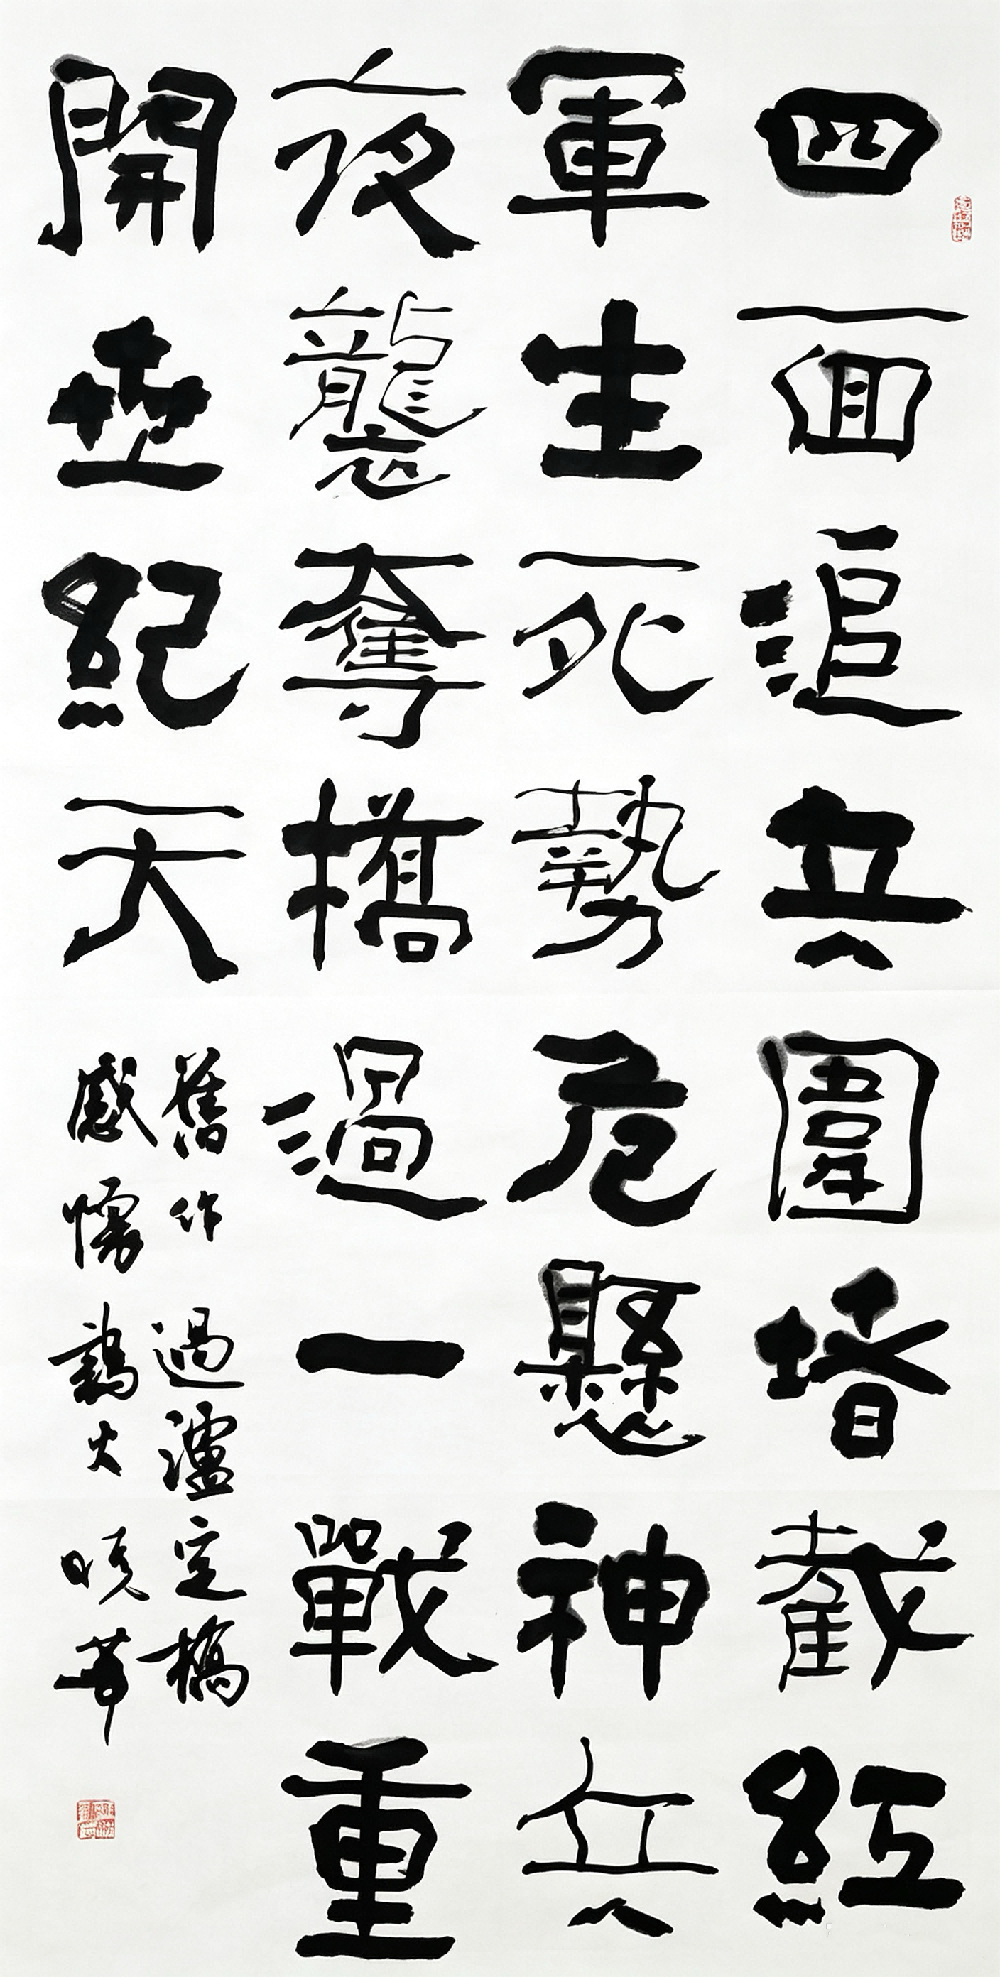 四面追兵圍堵截紅
軍生死勢危懸神兵
夜襲奪橋過一戰重
開世紀天
舊作過瀘定橋
感懷